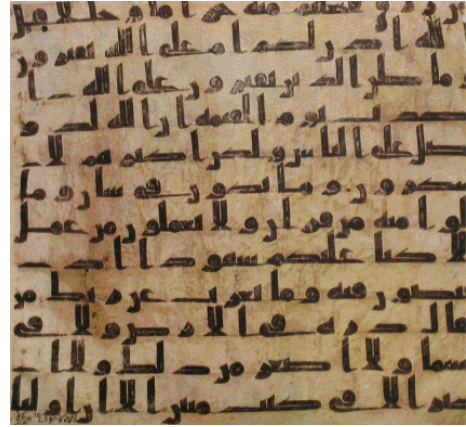 رزق فجعلتم منه حراما وحللا قل
الله اذن لكم ام على الله تفترون
وما ظن الذين يفترون على الله ا
لكذب يوم القيمة ان الله لذو
فضل على الناس ولكن اكثرهم لا
يشكرون وما تكون في شان وما
تتلوا منه من قران ولا تعملون من عمل
الا كنا عليكم شهودا اذ
تفيضون فيه وما يعزب عن ربك من
مثقال ذره في الارض ولا في ا
لسما ولا اصغر من ذلك ولا ا
كبر الا في كتب مبين الا ان اوليا